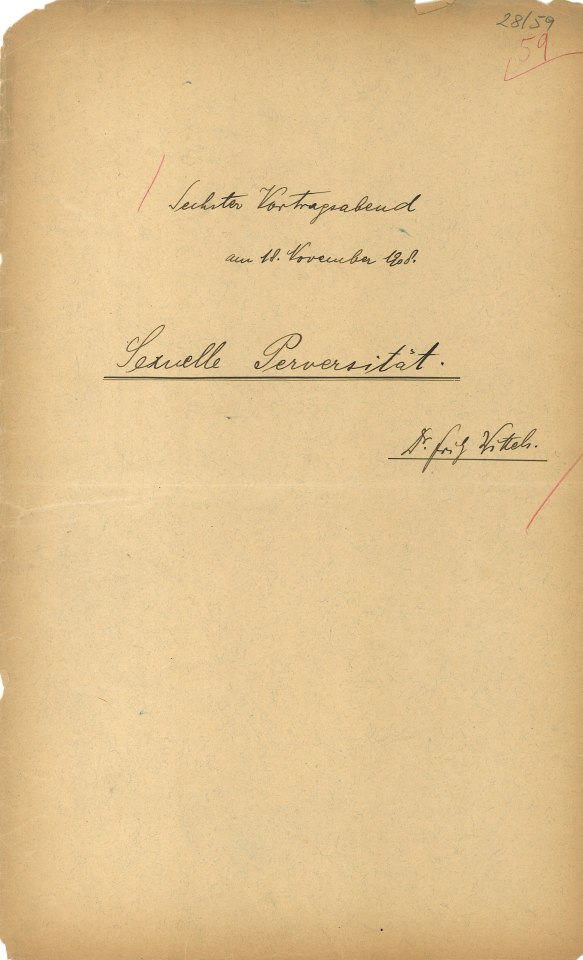 28/59
59
Sechster Vortragsabend
am 18. November 1908.
Sexuelle Perversität.
Dr. Fritz Wittels.